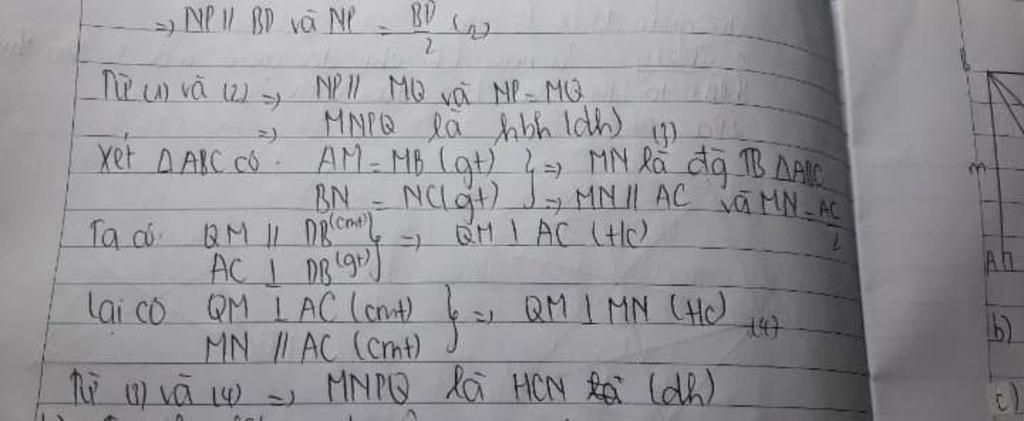 => NP // BD và NP = BD/2 (2)
Từ (1) và (2) => NP // MQ và NP = MQ
=> MNPQ là hbh (dh) (3)
Xét ΔABC có: AM = MB (gt) } => MN là đg TB ΔABC
BN = NC (gt) } => MN // AC và MN = AC/2
Ta có: QM // DB (cmt) } => QM ⊥ AC (Hc)
AC ⊥ DB (gt) }
Lại có QM ⊥ AC (cmt) } => QM ⊥ MN (Hc) (4)
MN // AC (cmt) }
Từ (3) và (4) => MNPQ là HCN (dh)
m
A
b)
c)